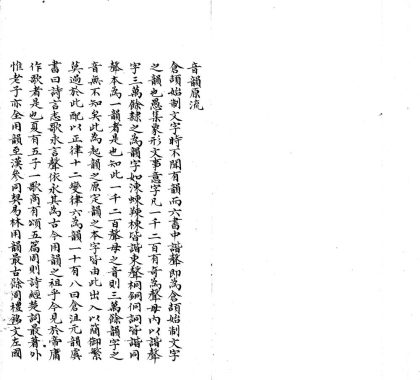 音韻原流
倉頡始制文字時不聞有韻而六書中諧聲即為倉頡始制文字
之韻也愚集象形文事意字凡一千二百有奇為聲母內以諧聲
字三萬餘隸之為韻字如涷蝀鞅棟皆諧東聲桐銅侗詷皆諧同
聲本為一韻者是也知此一千二百聲母之音則三萬餘韻字之
音無不知矣此為起韻之原定韻之本字皆由此出入以簡御繁
莫過於此配以正律十二變律六為韻一十有八曰倉沮元韻虞
書曰詩言志歌永言聲依永其為古今用韻之祖乎今見於帝庸
作歌者是也夏有五子一歌商有頌五篇周則詩經楚詞最著外
惟老子亦全用韻至漢參同契易林用韻最古餘周禮銘文左國